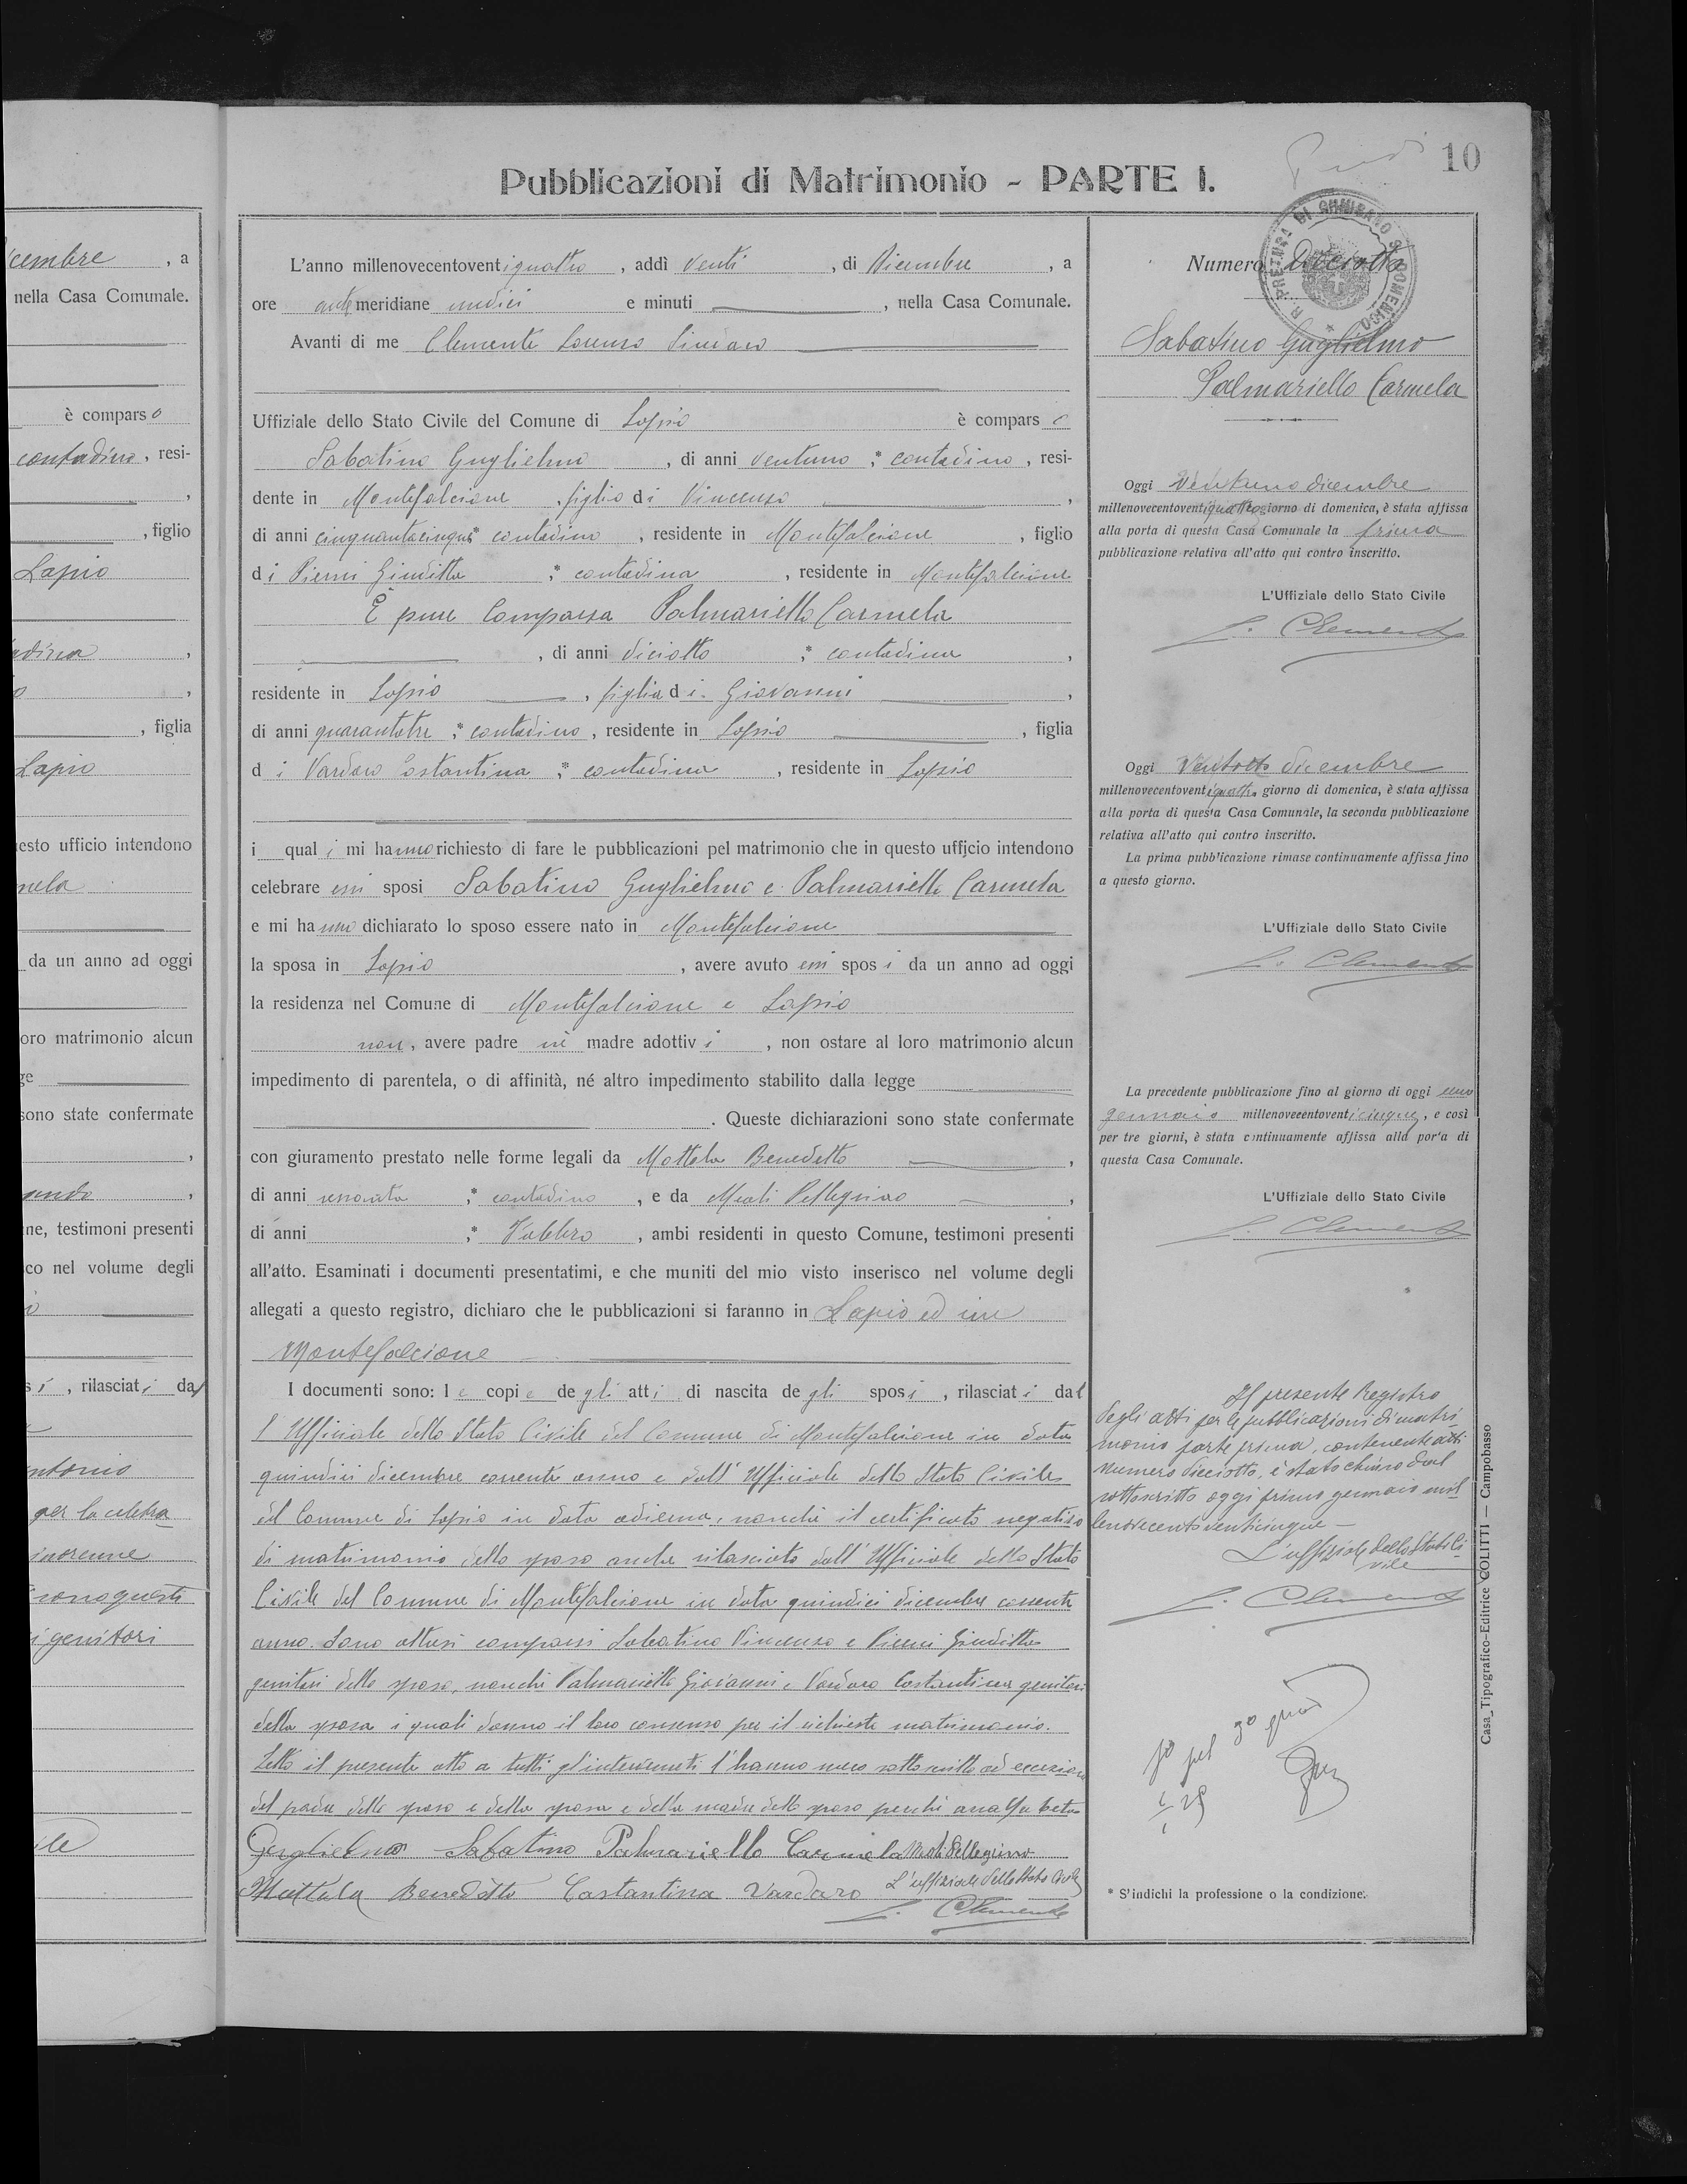 10
Pubblicazioni di Matrimonio - PARTE I.
cembre , a
nella Casa Comunale.
è comparso
contadino, resi-
, figlio
Lapio
adina ,
, figlia
Lapio
esto ufficio intendono
mela
da un anno ad oggi
oro matrimonio alcun
ge
sono state confermate
ne, testimoni presenti
co nel volume degli
si , rilasciati dal
ntonio
per la celebra
sono questi
i genitori
L'anno millenovecentoventiquattro , addì venti , di Dicembre , a
ore antemeridiane undici e minuti , nella Casa Comunale.
Avanti di me Clemente Lorenzo Sindaco
Uffiziale dello Stato Civile del Comune di Lapio è comparso
Sabatino Guglielmo , di anni ventuno ;* contadino , resi-
dente in Montefalcione , figlio di Vincenzo ,
di anni cinquantacinque* contadino , residente in Montefalcione , figlio
di Pierni Giuditta ;* contadina , residente in Montefalcione
È pure comparsa Palmariello Carmela
, di anni diciotto ;* contadina ,
residente in Lapio , figlia di Giovanni ,
di anni quarantatre ;* contadino , residente in Lapio , figlia
di Vardaro Costantina ;* contadina , residente in Lapio
i quali mi hanno richiesto di fare le pubblicazioni pel matrimonio che in questo ufficio intendono
celebrare essi sposi Sabatino Guglielmo e Palmariello Carmela
e mi hanno dichiarato lo sposo essere nato in Montefalcione
la sposa in Lapio , avere avuto essi sposi da un anno ad oggi
la residenza nel Comune di Montefalcione e Lapio
non , avere padre nè madre adottivi , non ostare al loro matrimonio alcun
impedimento di parentela, o di affinità, né altro impedimento stabilito dalla legge
. Queste dichiarazioni sono state confermate
con giuramento prestato nelle forme legali da Mottola Benedetto ,
di anni sessanta ;* contadino , e da Meoli Pellegrino ,
di anni ;* Fabbro , ambi residenti in questo Comune, testimoni presenti
all'atto. Esaminati i documenti presentatimi, e che muniti del mio visto inserisco nel volume degli
allegati a questo registro, dichiaro che le pubblicazioni si faranno in Lapio ed in
Montefalcione
I documenti sono: le copie degli atti di nascita degli sposi , rilasciati dal
l'Ufficiale dello Stato Civile del Comune di Montefalcione in data
quindici dicembre corrente anno e dall'Ufficiale dello Stato Civile
del Comune di Lapio in data odierna, nonchè il certificato negativo
di matrimonio dello sposo anche rilasciato dall'Ufficiale dello Stato
Civile del Comune di Montefalcione in data quindici dicembre corrente
anno. Sono altresì comparsi Sabatino Vincenzo e Pierni Giuditta
genitori dello sposo, nonchè Palmariello Giovanni e Vardaro Costantina genitori
della sposa i quali danno il loro consenso per il richiesto matrimonio.
Letto il presente atto a tutti gl'intervenuti l'hanno meco sottoscritto ad eccezione
del padre dello sposo e della sposa e della madre dello sposo perchè analfabeta
Guglielmo Sabatino Palmariello Carmela Meoli Pellegrino
Mottola Benedetto Costantina Vardaro L'uffiziale dello Stato Civile
L. Clemente
R. PRETURA DI CHIUSANO S. DOMENICO
Numero diciotto
Sabatino Guglielmo
Palmariello Carmela
Oggi Ventuno dicembre
millenovecentoventiquattro giorno di domenica, è stata affissa
alla porta di questa Casa Comunale la prima
pubblicazione relativa all'atto qui contro inscritto.
L'Uffiziale dello Stato Civile
L. Clemente
Oggi Ventotto dicembre
millenovecentoventiquattro giorno di domenica, è stata affissa
alla porta di questa Casa Comunale, la seconda pubblicazione
relativa all'atto qui contro inscritto.
La prima pubblicazione rimase continuamente affissa fino
a questo giorno.
L'Uffiziale dello Stato Civile
L. Clemente
La precedente pubblicazione fino al giorno di oggi uno
gennaio millenovecentoventicinque, e così
per tre giorni, è stata continuamente affissa alla porta di
questa Casa Comunale.
L'Uffiziale dello Stato Civile
L. Clemente
Il presente Registro
degli atti per le pubblicazioni di matri-
monio parte prima, contenente atti
numero diciotto, è stato chiuso dal
sottoscritto oggi primo gennaio mil
lenovecentoventicinque -
L'uffiziale dello Stato Ci-
vile
L. Clemente
* S'indichi la professione o la condizione.
Casa Tipografico-Editrice COLITTI — Campobasso